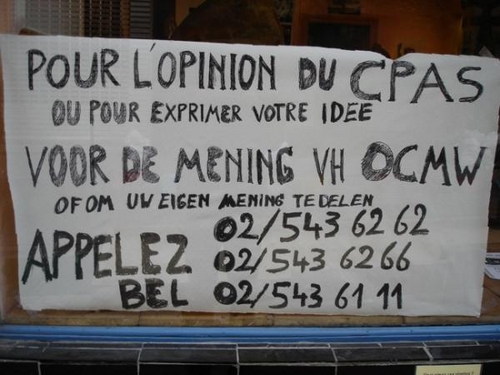 POUR L'OPINION DU CPAS
OU POUR EXPRIMER VOTRE IDEE
VOOR DE MENING VH OCMW
OF OM UW EIGEN MENING TE DELEN
APPELEZ
BEL
02/543 62 62
02/543 62 66
02/543 61 11